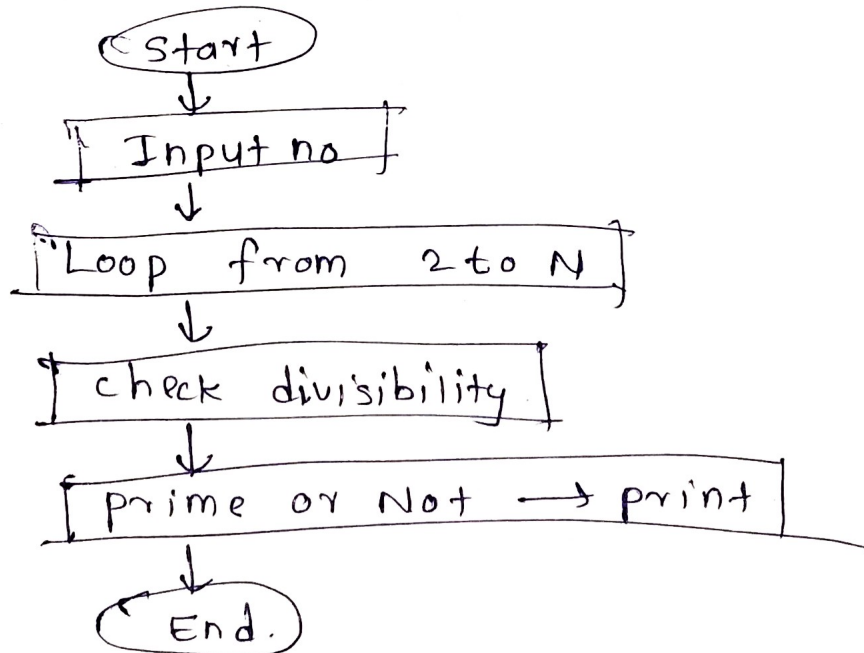 Start
Input no
Loop from 2 to N
check divisibility
prime or Not → print
End.